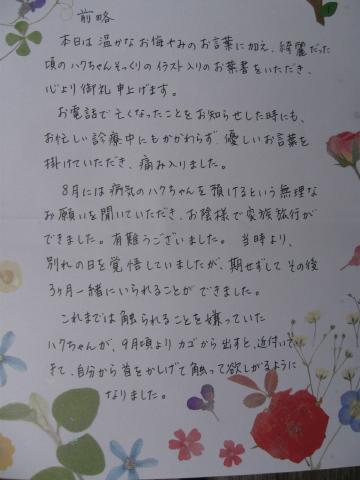 前略
本日は温かなお悔やみのお言葉に加え、綺麗だった
頃のハクちゃんそっくりのイラスト入りのお葉書をいただき、
心より御礼申上げます。
お電話で亡くなったことをお知らせした時にも、
お忙しい診療中にもかかわらず、優しいお言葉を
掛けていただき、痛み入りました。
8月には病気のハクちゃんを預けるという無理な
お願いを聞いていただき、お陰様で家族旅行が
できました。有難うございました。当時より、
別れの日を覚悟していましたが、期せずしてその後
3ヶ月一緒にいられることができました。
これまでは触られることを嫌っていた
ハクちゃんが、9月頃よりカゴから出すと、近付いて
きて、自分から首をかしげて触って欲しがるように
なりました。